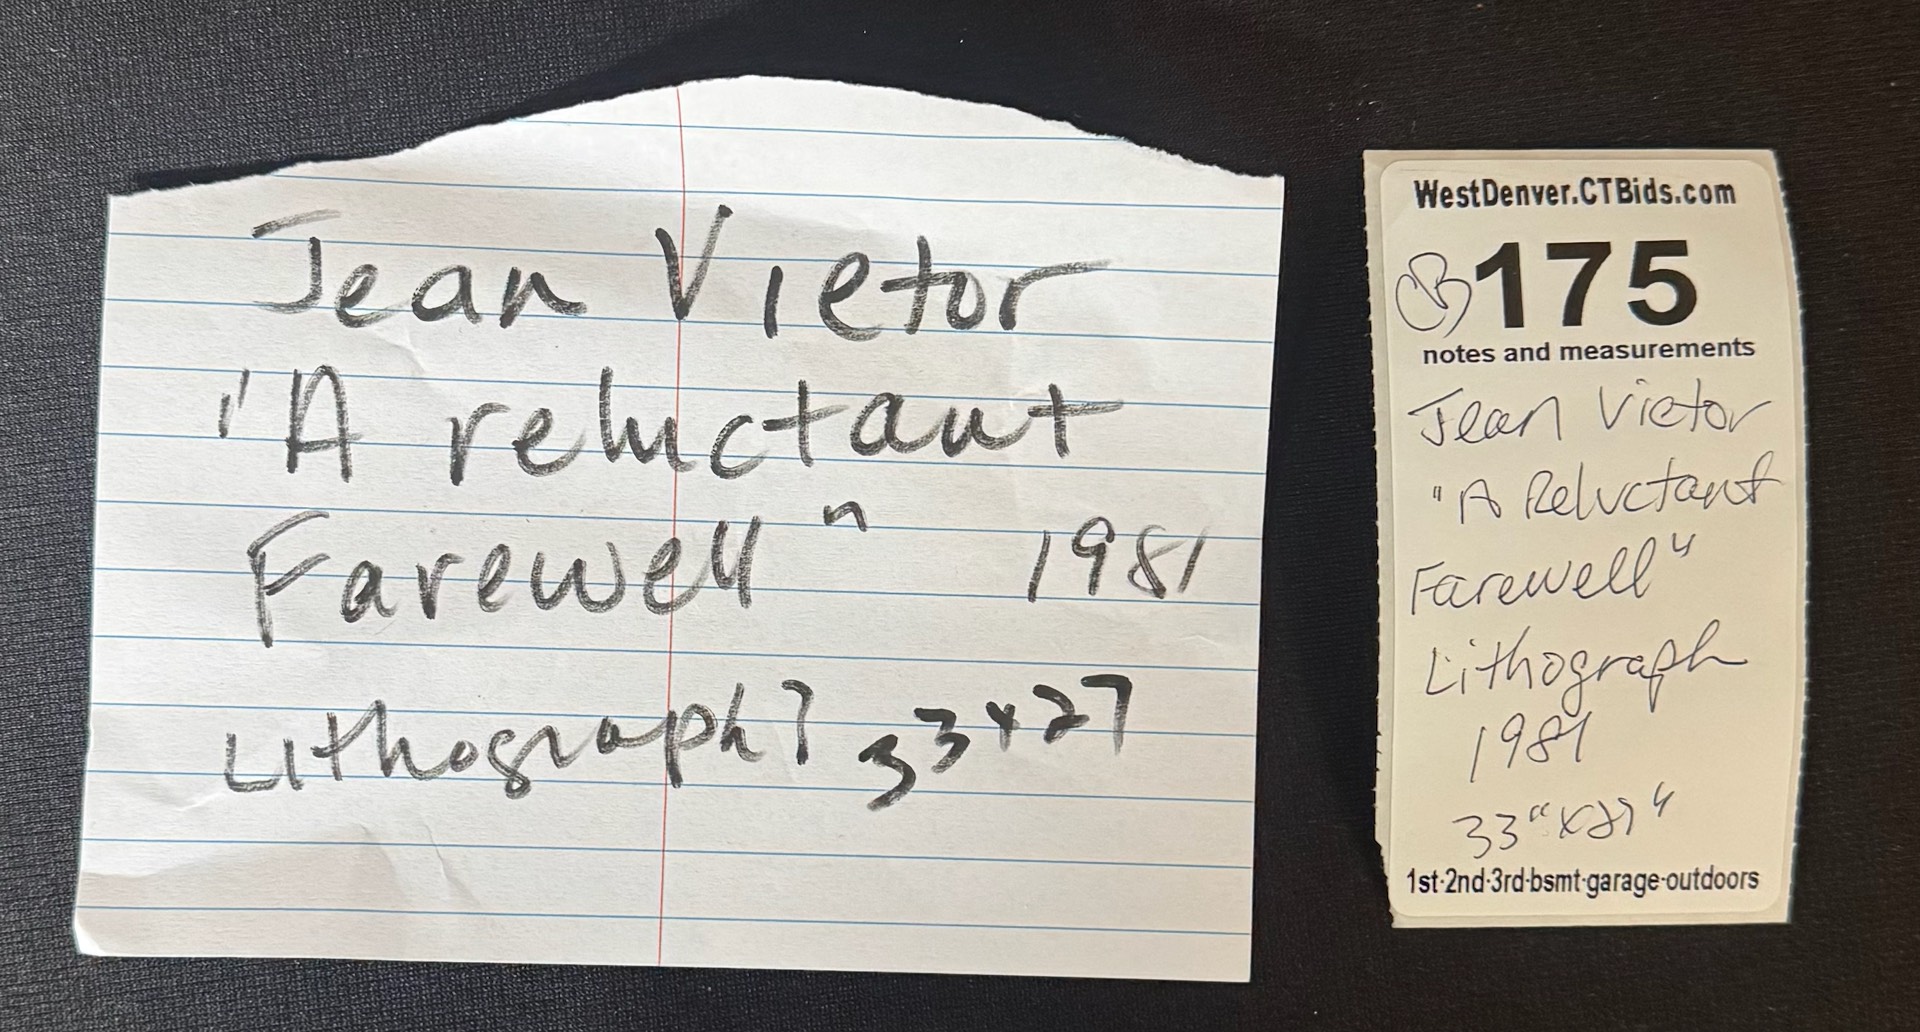 Jean Vietor
"A reluctant
Farewell" 1981
Lithograph? 33x27
WestDenver.CTBids.com
CB 175
notes and measurements
Jean Vietor
"A Reluctant
Farewell"
Lithograph
1981
33"x27"
1st·2nd·3rd·bsmt·garage·outdoors